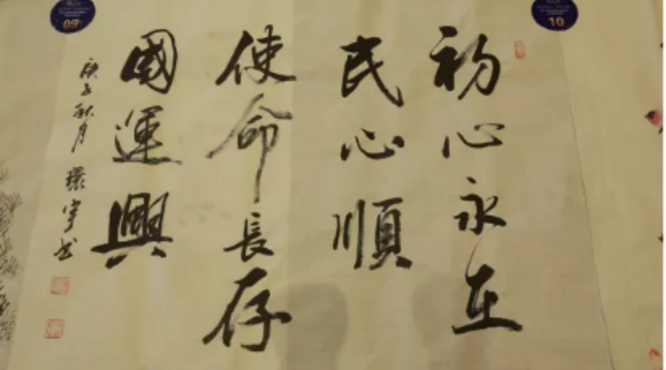 初心永在
民心順
使命長存
國運興
庚子秋月 環宇书
09
10